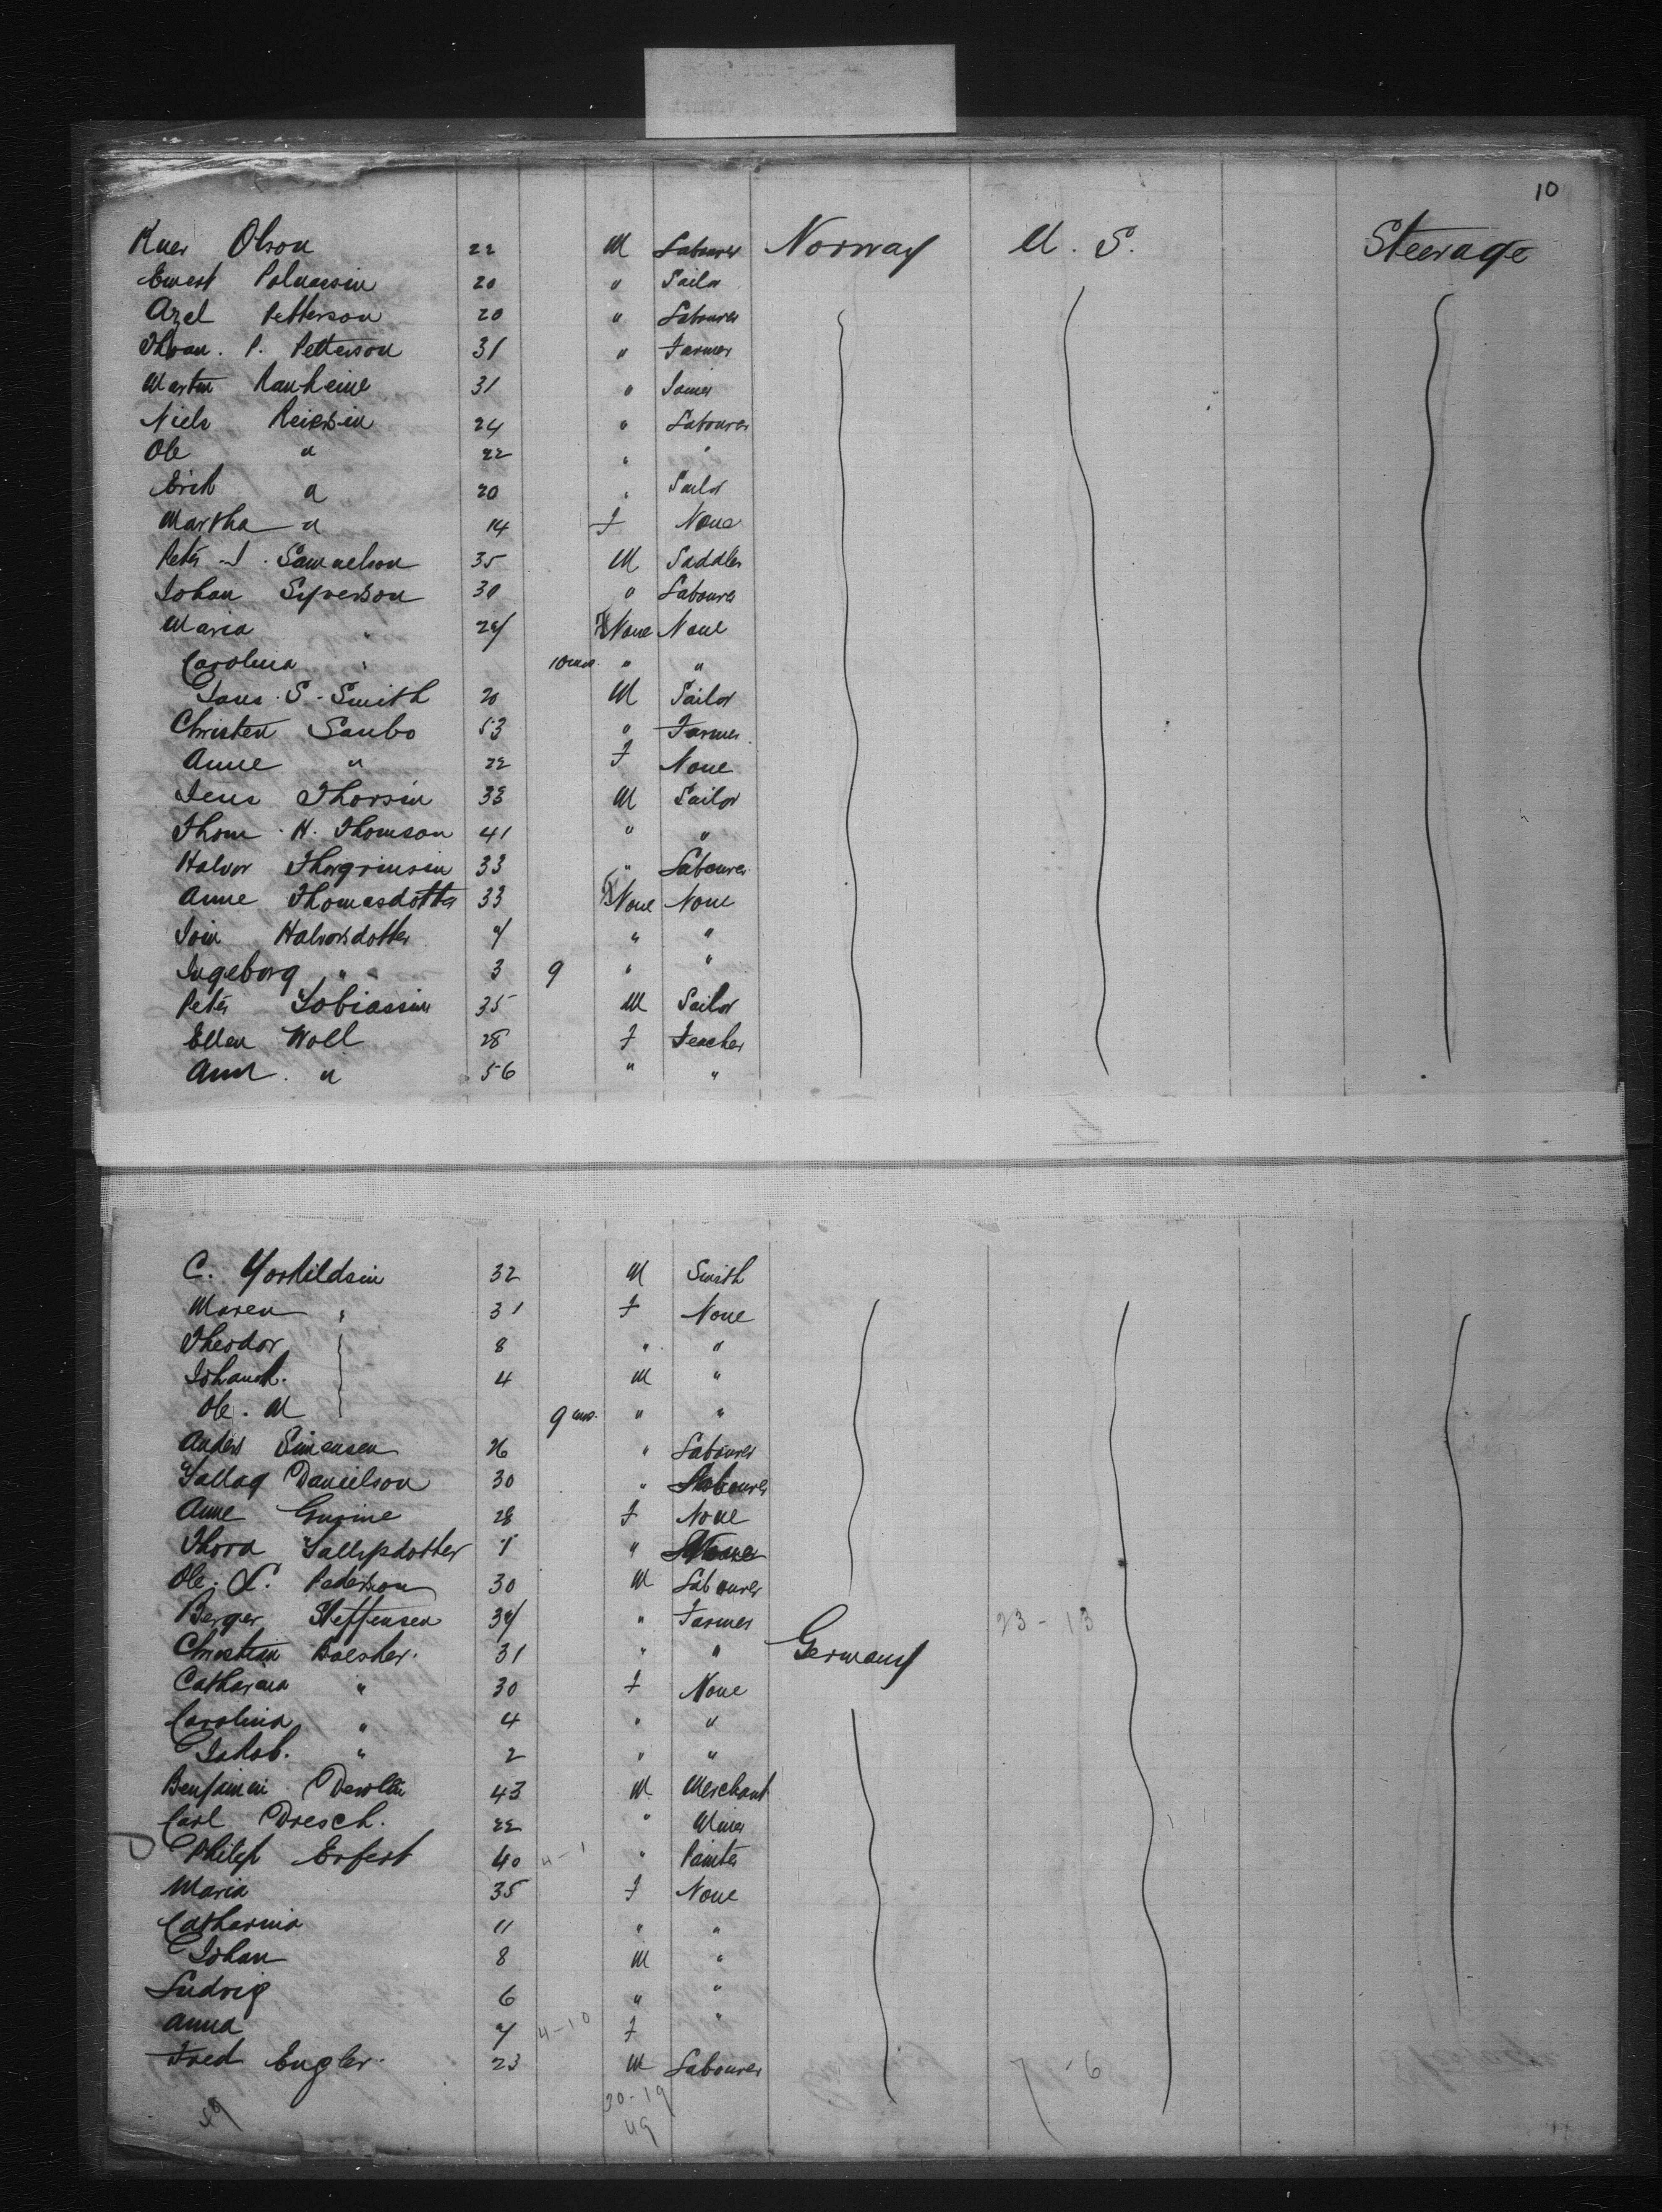 10
Knes Olson 22 M Labourer Norway U. S. Steerage
Ernest 20 " Sailor
Azel Petterson 20 " Labourer
P. Petterson 31 " Farmer
Martin Ranheine 31 "
Niels Reiersin 24 " Labourer
Ole " 22 " "
Erik " 20 " Sailor
Martha " 14 F None
Peter J. Samuelson 35 M Saddler
Johan Syverson 30 " Labourer
Maria " 27 F None None
Carolina " 10 mos. " "
Hans S. Smith 20 M Sailor
Christen Sanbo 53 " Farmer
Anne " 22 F None
Jens Thorsin 33 M Sailor
Thom H. Thomson 41 " "
Halvor Thorgrimsin 33 " Labourer
Anne Thomasdotter 33 F None None
Halvorsdotter 7 " "
Ingeborg " 3 9 " "
Peter Tobiassin 35 M Sailor
Ellen Woll 28 F Teacher
Ann " 56 " "
C. Yorkildsin 32 M Smith
Maren " 31 F None
Theodor 8 " "
4 M "
Ole. M 9 mos. " "
Anders Simensen 26 " Labourer
Tallag Danielson 30 " Labourer
Anne Gurine 28 F None
Thora 1 " None
Ole. L. Pederson 30 M Labourer
Berger Steffensen 37 " Farmer 23-13
Christian Boesher 31 " " Germany
Catharina " 30 F None
Carolina " 4 " "
Jakob. " 2 " "
Benjamin 43 M Merchant
Carl Dresch. 22 " Miner
Philip Erfert 40 4-1 " Painter
Maria 35 F None
Catharina 11 " "
Johan 8 M "
Ludvig 6 " "
Anna 7 4-10 F "
Fred Engler. 23 M Labourer 7-6
30-19
49 49